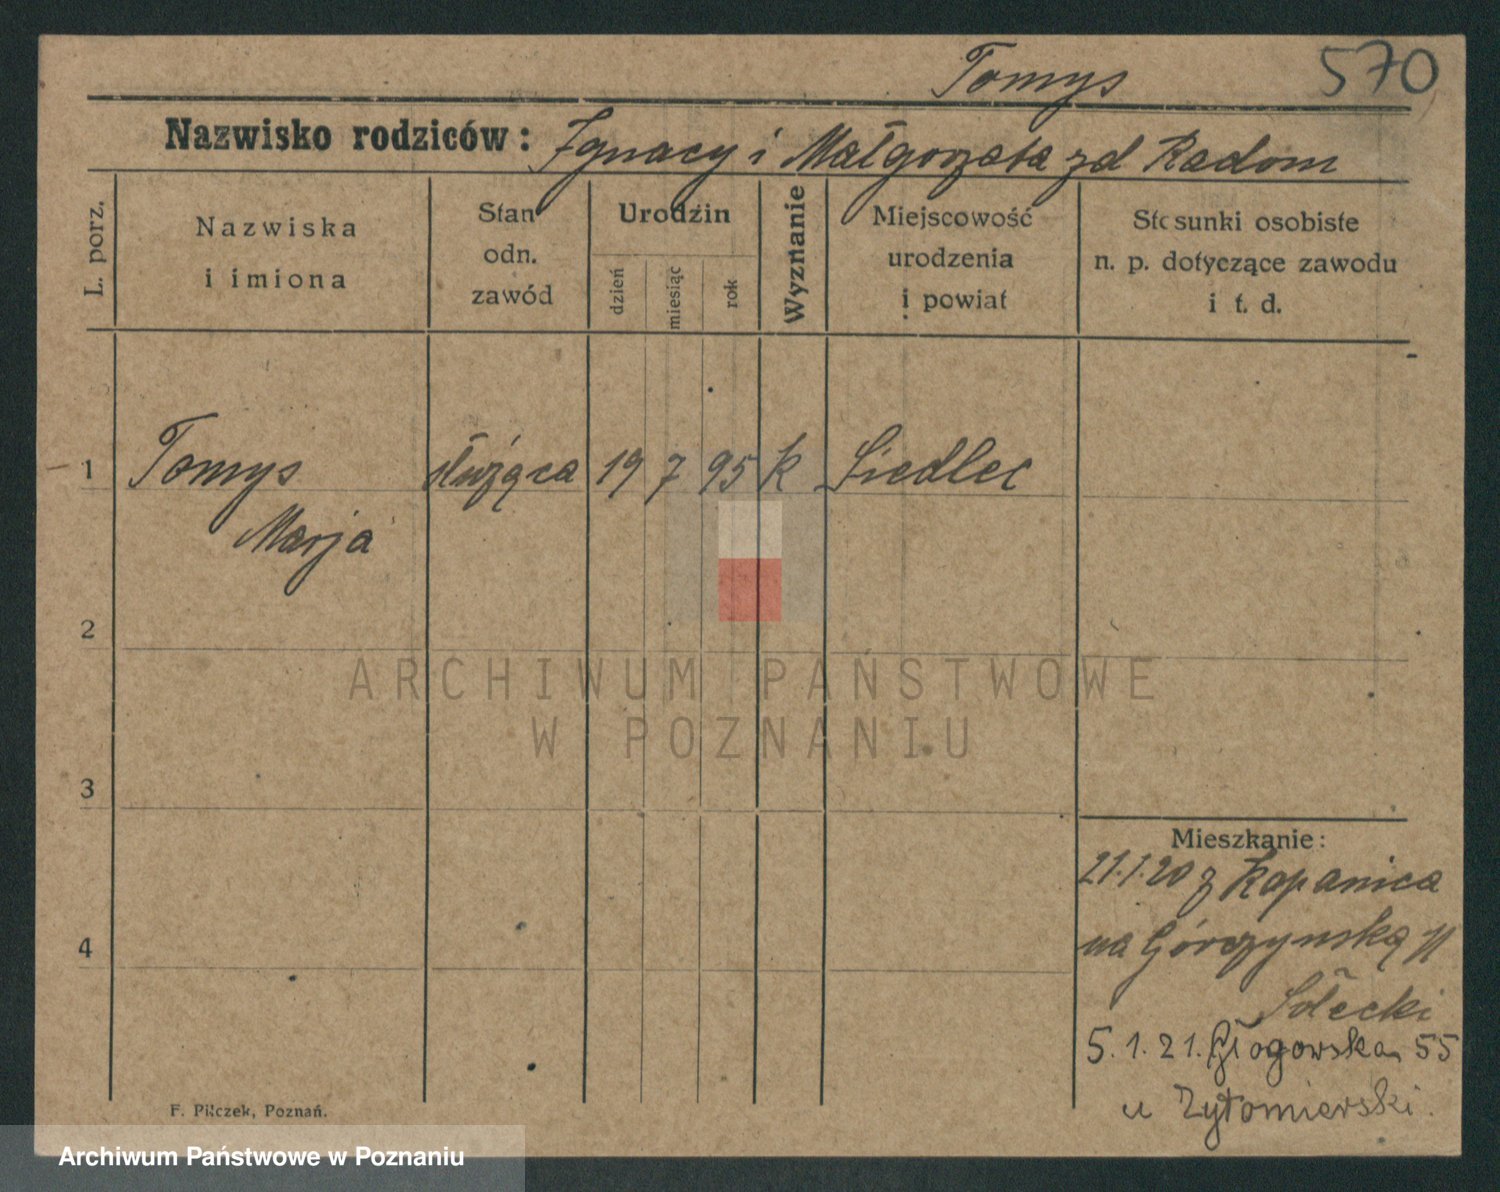 Tomys 570
Nazwisko rodziców: Ignacy i Małgorzata zd Radom
L. porz.
Nazwiska
i imiona
Stan
odn.
zawód
Urodzin
dzień
miesiąc
rok
Wyznanie
Miejscowość
urodzenia
i powiat
Stosunki osobiste
n. p. dotyczące zawodu
i t. d.
1 Tomys służąca 19 7 95 k Siedlec
Marja
2
3
4
Mieszkanie:
21.1.20 z Kopanica
na Górczyńską 11
Sołecki
5.1.21. Głogowska 55
u Żytomierski.
F. Pilczek, Poznań.
ARCHIWUM PAŃSTWOWE
W POZNANIU
Archiwum Państwowe w Poznaniu